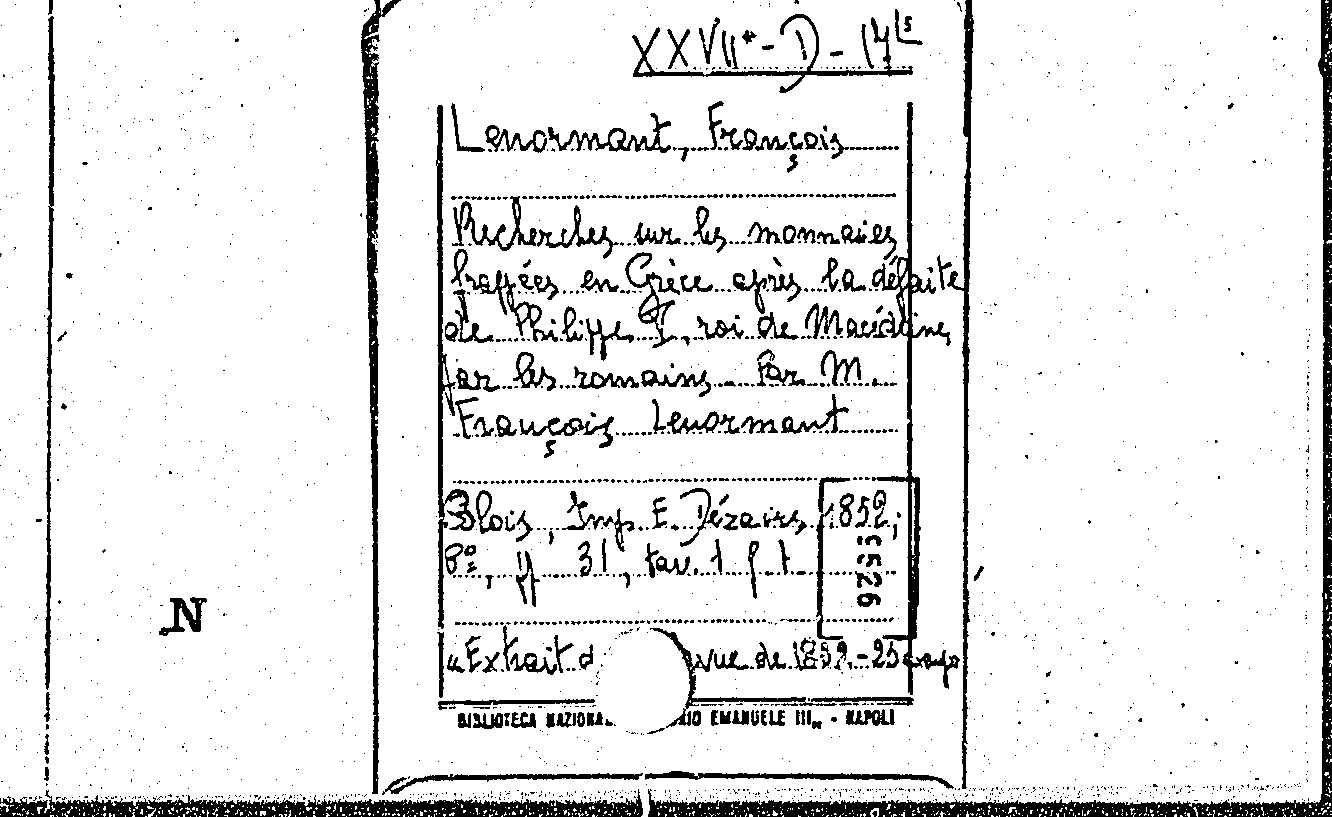 XXVII*-D-14 15
Lenormant, François
Recherches sur les monnaies
frappées en Grèce après la défaite
de Philippe V, roi de Macédoine,
par les romains. Par M.
François Lenormant
Blois, Imp. E. Dézairs, 1852;
8º, pp 31, tav. 1 f. t.
5526
"Extrait d vue de 1852.-25 exempl
BIBLIOTECA NAZIONA RIO EMANUELE III„ - NAPOLI
N